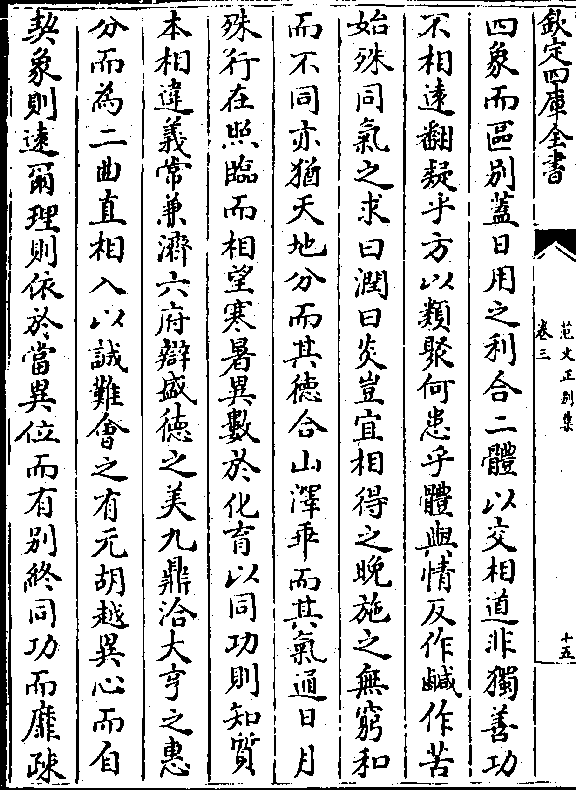 欽定四庫全書
范文正別集
卷三
十五
四象而區別蓋日用之利合二體以交相道非獨善功
不相逺翻疑乎方以類聚何患乎體與情反作鹹作苦
始殊同氣之求曰潤曰炎豈宜相得之晚施之無窮和
而不同亦猶天地分而其徳合山澤乖而其氣通日月
殊行在照臨而相望寒暑異數於化育以同功則知質
本相違義常兼濟六府辯盛徳之美九鼎洽大亨之惠
分而為二曲直相入以誠難會之有元胡越異心而自
契象則逺爾理則依於當異位而有別終同功而靡疎